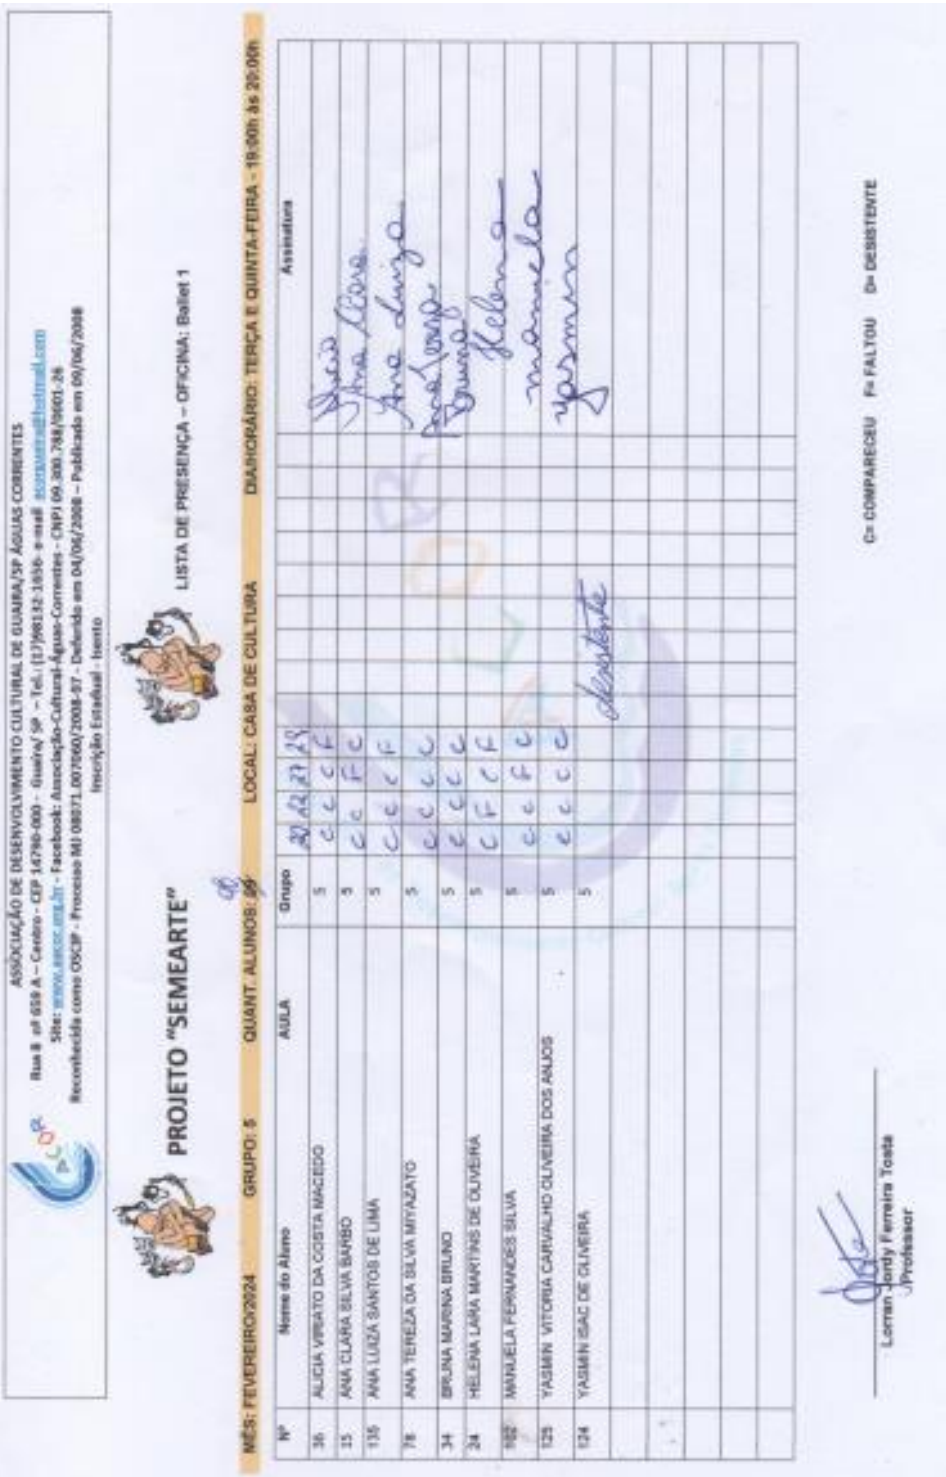 ASSOCIAÇÃO DE DESENVOLVIMENTO CULTURAL DE GUAIRA/SP ÁGUAS CORRENTES
Rua 8 nº 659 A – Centro - CEP 14790-000 - Guaíra/ SP – Tel.: (17)98132-1656- e-mail
Site: www.aacor.org.br - Facebook: Associação-Cultural-Águas-Correntes - CNPJ 09.300.788/0001-26
Reconhecida como OSCIP - Processo MJ 08071.007060/2008-57 - Deferido em 04/06/2008 – Publicado em 09/06/2008
Inscrição Estadual - Isento
PROJETO "SEMEARTE"
LISTA DE PRESENÇA – OFICINA: Ballet 1
MÊS: FEVEREIRO/2024 GRUPO: 5 QUANT. ALUNOS: LOCAL: CASA DE CULTURA DIA/HORÁRIO: TERÇA E QUINTA-FEIRA - 19:00h às 20:00h
Nº Nome do Aluno AULA Grupo 20 22 27 29 Assinatura
36 ALICIA VIRIATO DA COSTA MACEDO 5 C C C F
15 ANA CLARA SILVA BARBO 5 C C F C Ana Clara
135 ANA LUIZA SANTOS DE LIMA 5 C C C F Ana Luiza
78 ANA TEREZA DA SILVA MIYAZATO 5 C C C C
34 BRUNA MARINA BRUNO 5 C C C C Bruna
24 HELENA LARA MARTINS DE OLIVEIRA 5 C F C F Helena
102 MANUELA FERNANDES SILVA 5 C C F C manuela
125 YASMIN VITORIA CARVALHO OLIVEIRA DOS ANJOS 5 C C C C yasmin
124 YASMIN ISAC DE OLIVEIRA 5 desistente
C= COMPARECEU F= FALTOU D= DESISTENTE
Lorran Jordy Ferreira Tosta
Professor